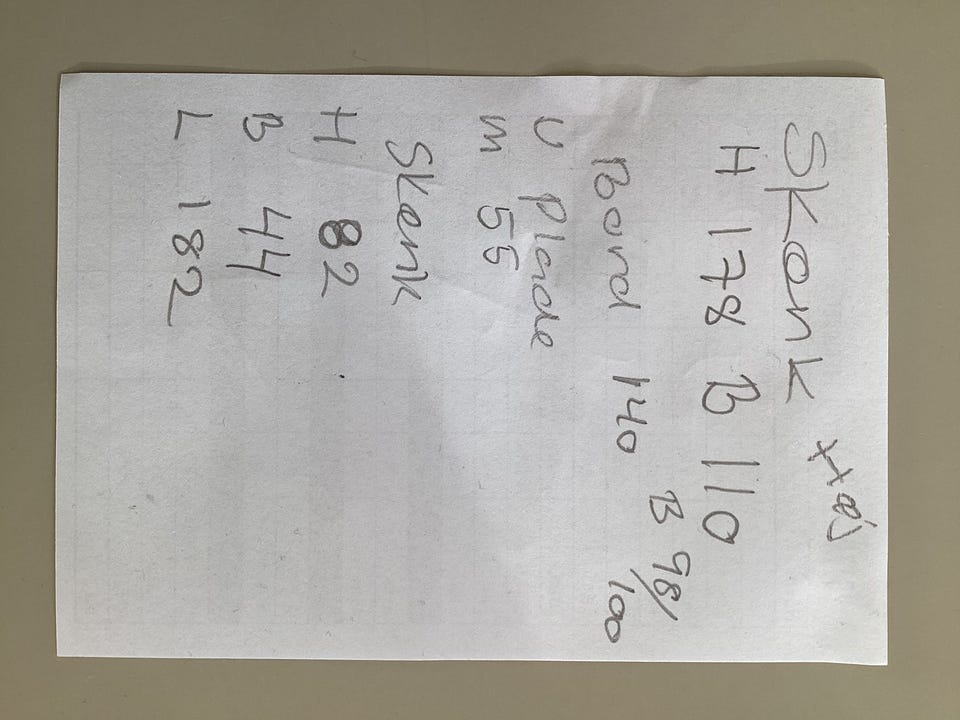 Skank Høj
H 178 B 110
B 98/100
Bord 140
U Plade
m 55
Skenk
H 82
B 44
L 182